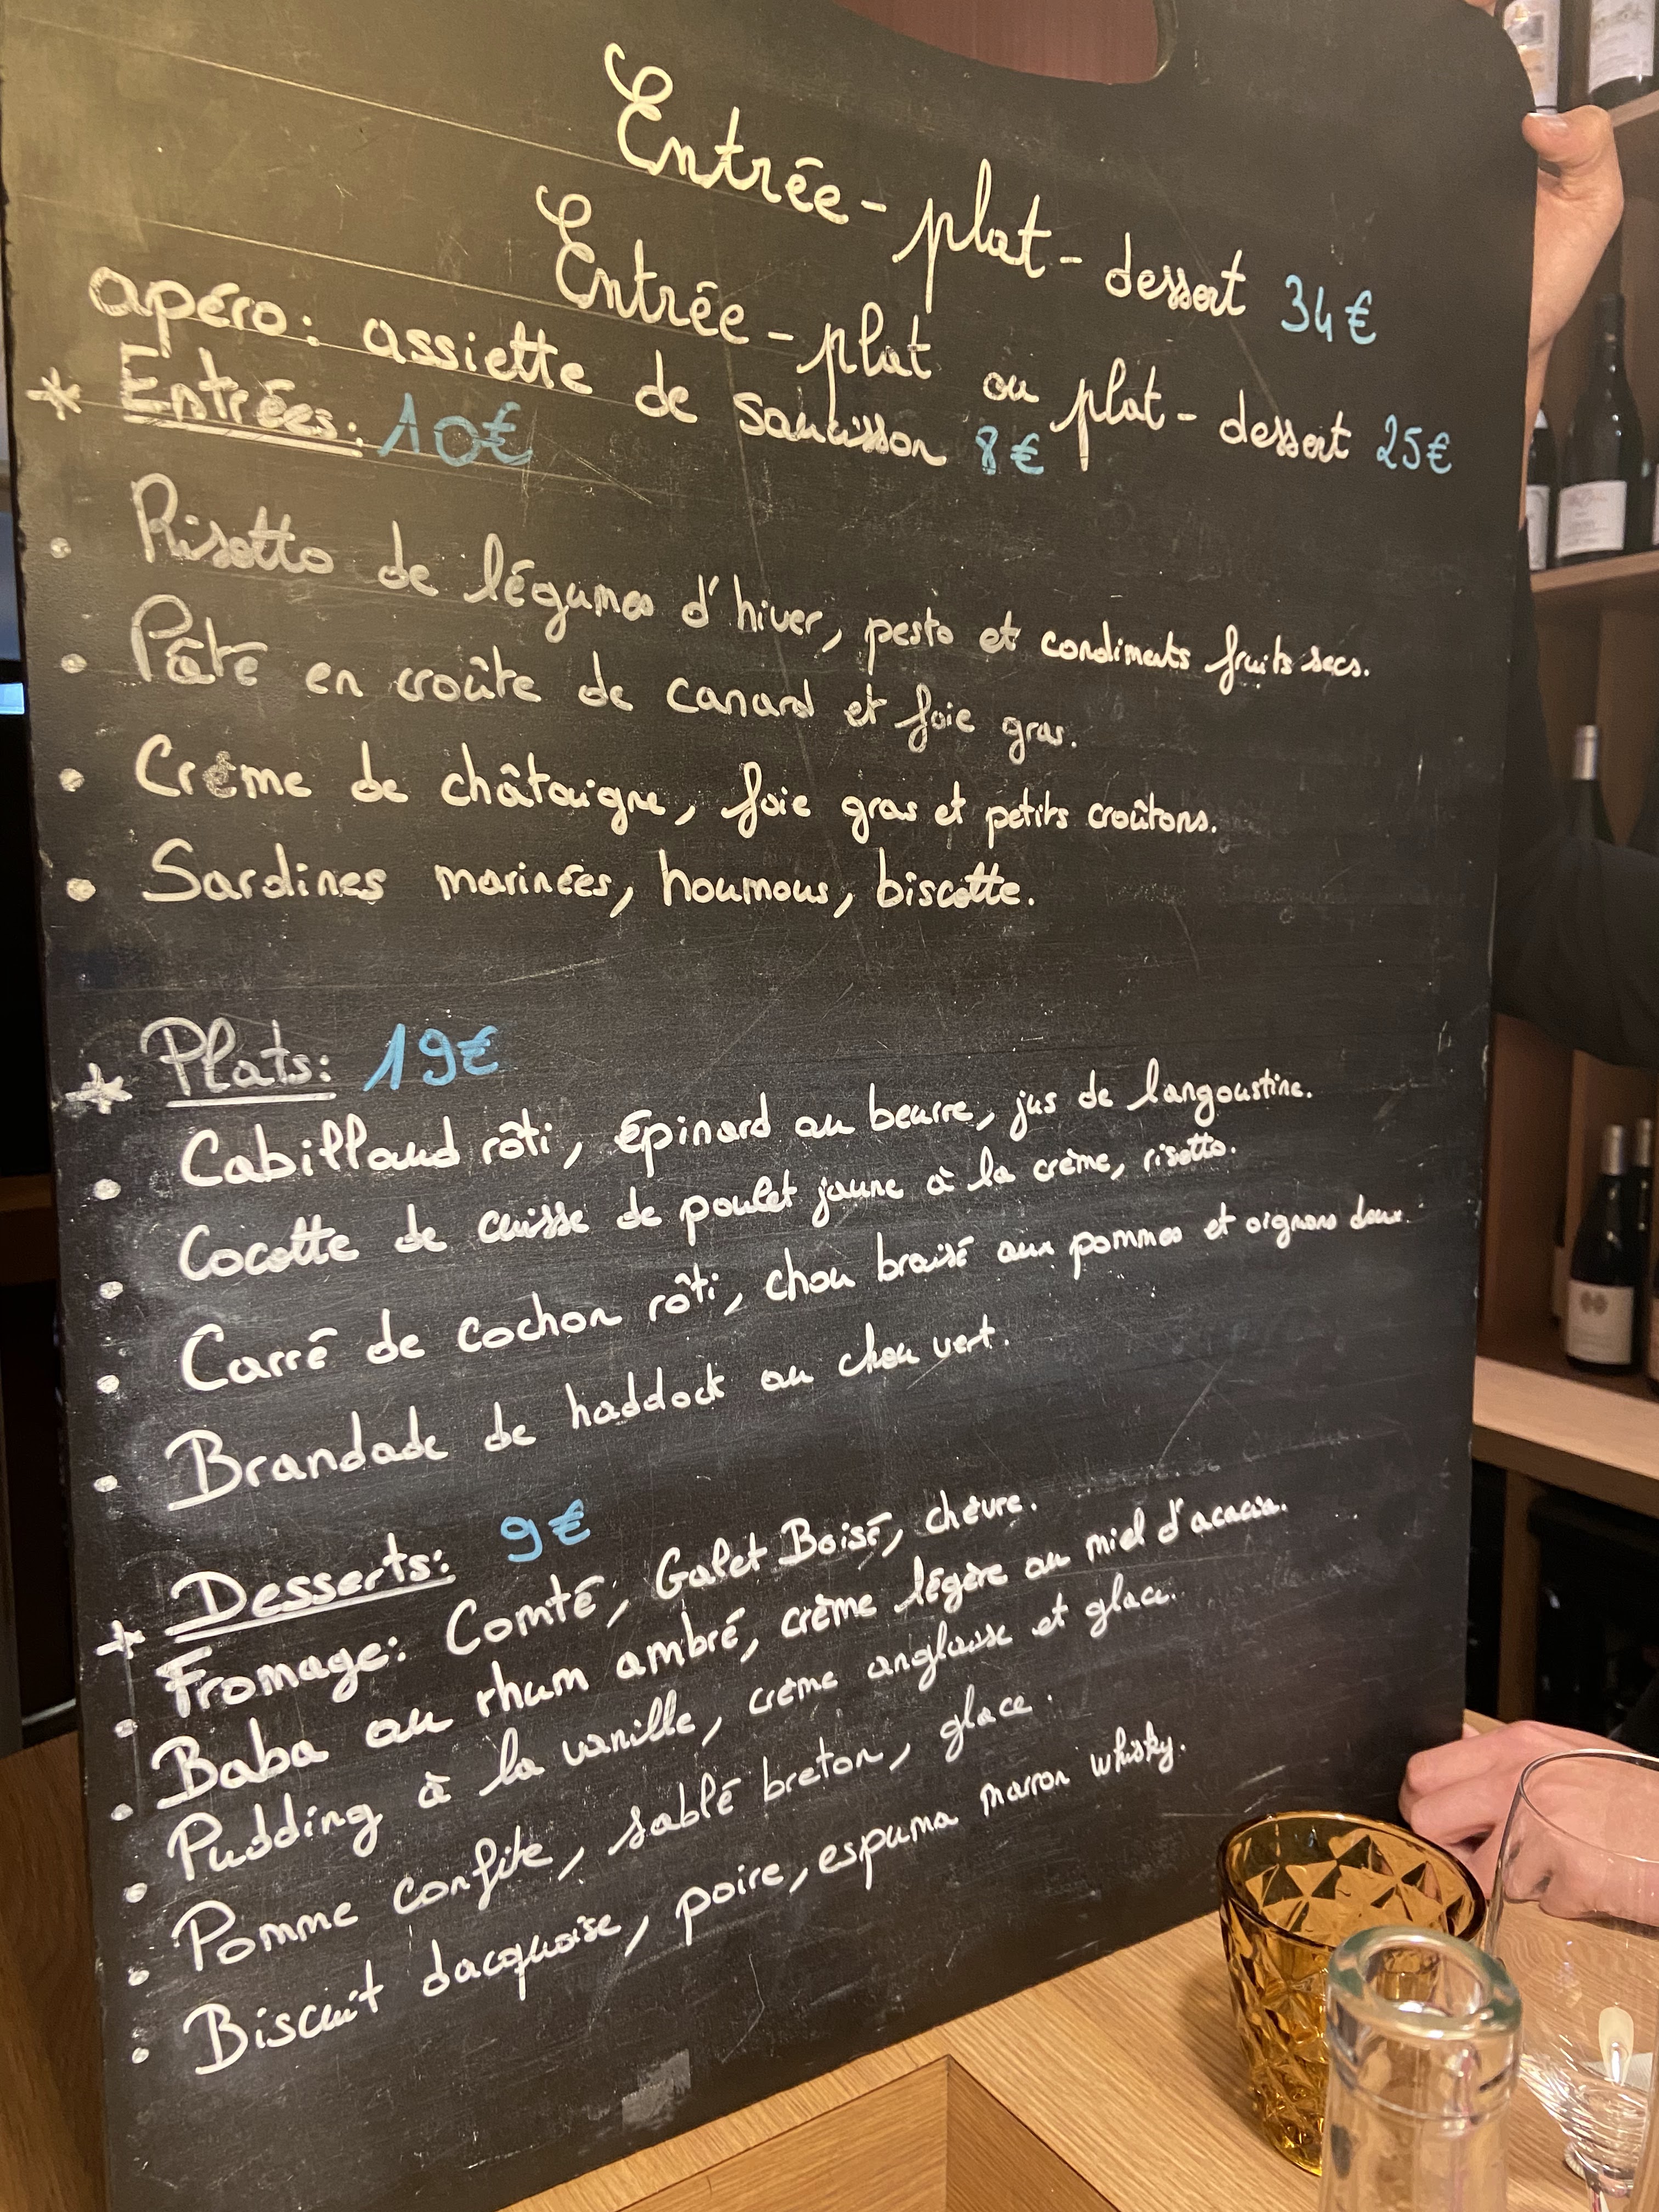 Entrée - plat - dessert 34€
Entrée - plat ou plat - dessert 25€
apéro: assiette de saucisson 8€
* Entrées: 10€
• Risotto de légumes d'hiver, pesto et condiments fruits secs.
• Pâté en croûte de canard et foie gras.
• Crème de châtaigne, foie gras et petits croûtons.
• Sardines marinées, houmous, biscotte.
* Plats: 19€
• Cabillaud rôti, épinard au beurre, jus de langoustine.
• Cocotte de cuisse de poulet jaune à la crème, risotto.
• Carré de cochon rôti, chou braisé aux pommes et oignons doux.
• Brandade de haddock au chou vert.
* Desserts: 9€
• Fromage: Comté, Galet Boisé, chèvre.
• Baba au rhum ambré, crème légère au miel d'acacia.
• Pudding à la vanille, crème anglaise et glace.
• Pomme confite, sablé breton, glace.
• Biscuit dacquoise, poire, espuma marron whisky.